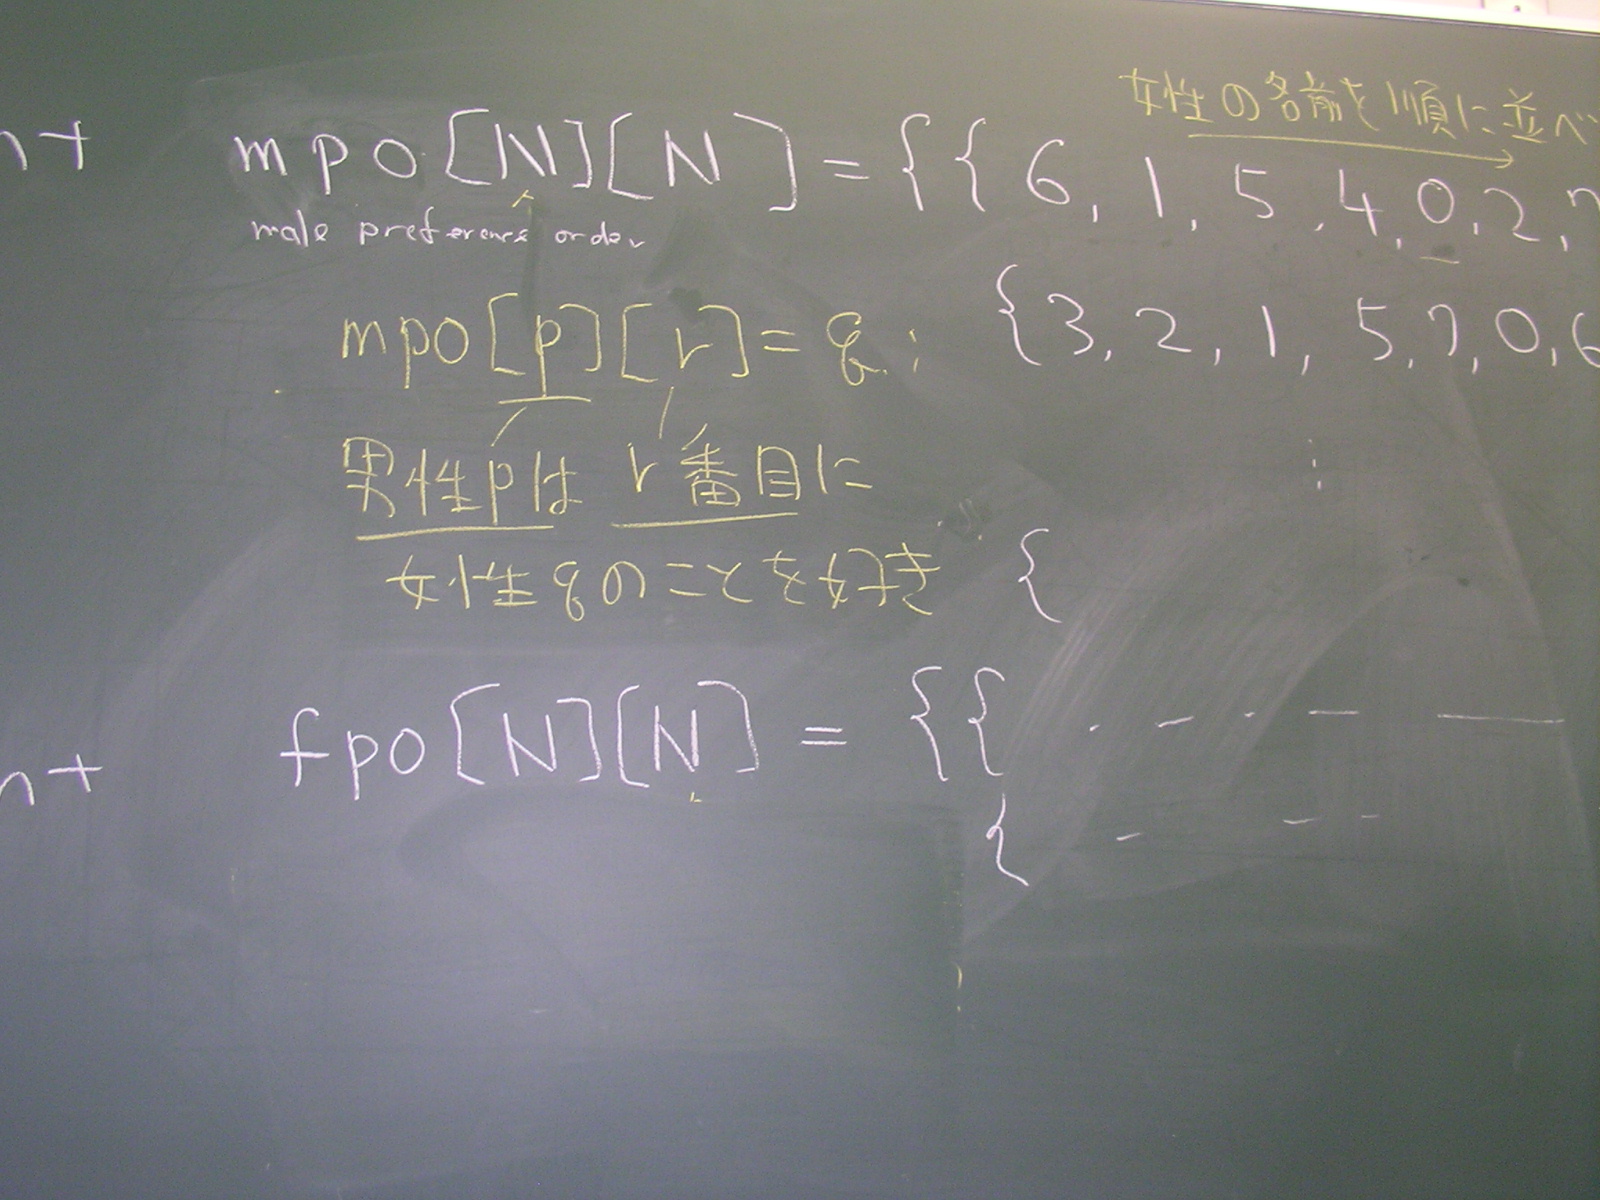 女性の名前を順に並べ
nt mpo[N][N] = {{6, 1, 5, 4, 0, 2, 7
male preference order
mpo[p][r] = q; {3, 2, 1, 5, 7, 0, 6
男性pは r番目に
女性qのことを好き {
nt fpo[N][N] = {{
{